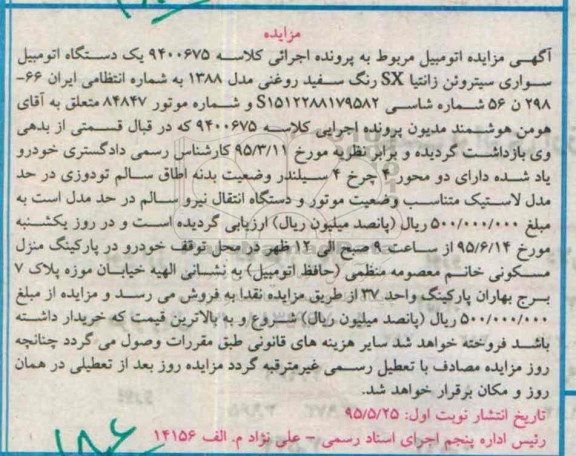 مزایده
آگهـی مزایده اتومبیل مربوط به پرونده اجرائی کلاسـه ۹۴۰۰۶۷۵ یک دستگاه اتومبیل
سـواری سیتروئن زانتیا SX رنگ سـفید روغنی مدل ۱۳۸۸ به شماره انتظامی ایران ۶۶-
۲۹۸ ن ۵۶ شـماره شاسـی S۱۵۱۲۲۸۸۱۷۹۵۸۲ و شـماره موتور ۸۴۸۴۷ متعلق به آقای
هومن هوشـمند مدیون پرونده اجرایی کلاسـه ۹۴۰۰۶۷۵ که در قبال قسـمتی از بدهی
وی بازداشـت گردیده و برابر نظریه مورخ ۹۵/۳/۱۱ کارشناس رسمی دادگستری خودرو
یاد شـده دارای دو محور ۴ چرخ ۴ سـیلندر وضعیت بدنه اطاق سـالم تودوزی در حد
مدل لاسـتیک متناسـب وضعیت موتور و دستگاه انتقال نیرو سـالم در حد مدل است به
مبلغ ۵۰۰/۰۰۰/۰۰۰ ریال (پانصد میلیون ریال) ارزیابی گردیده اسـت و در روز یکشـنبه
مورخ ۹۵/۶/۱۴ از سـاعت ۹ صبح الی ۱۲ ظهر در محل توقف خودرو در پارکینگ منزل
مسـکونی خانـم معصومه منظمی (حافظ اتومبیل) به نشـانی الهیه خیابـان موزه پلاک ۷
بـرج بهاران پارکینگ واحد ۳۷ از طریق مزایده نقدا به فروش می رسـد و مزایده از مبلغ
۵۰۰/۰۰۰/۰۰۰ ریال (پانصد میلیون ریال) شـروع و به بالاترین قیمت که خریدار داشـته
باشـد فروخته خواهد شد سایر هزینه های قانونی طبق مقررات وصول می گردد چنانچه
روز مزایده مصادف با تعطیل رسـمی غیرمترقبه گردد مزایده روز بعد از تعطیلی در همان
روز و مکان برقرار خواهد شد.
تاریخ انتشار نوبت اول: ۹۵/۵/۲۵
رئیس اداره پنجم اجرای اسناد رسمی - علی نژاد م. الف ۱۴۱۵۶